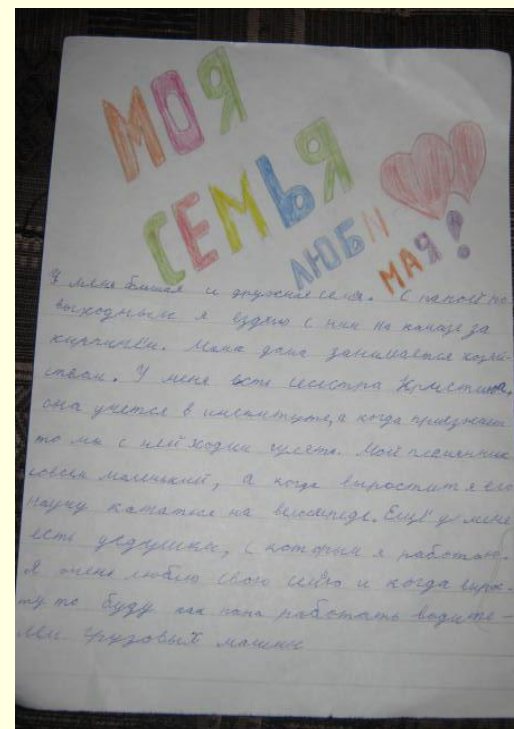 МОЯ
СЕМЬЯ
ЛЮБИ
МАЯ!
У меня большая и дружная семья. С папой по
выходным я ездию с ним на камазе за
кирпичём. Мама дома занимается хозяй-
ством. У меня есть сесестра Кристина,
она учется в институте, а когда приезжает
то мы с ней ходим гулять. Мой племенник
совсем маленький, а когда выростит я его
научу кататься на велосипеде. Ещё у меня
есть дедушка, с которым я работаю.
Я очень люблю свою семью и когда вырос-
ту то буду как папа работать водите-
лем грузовых машин